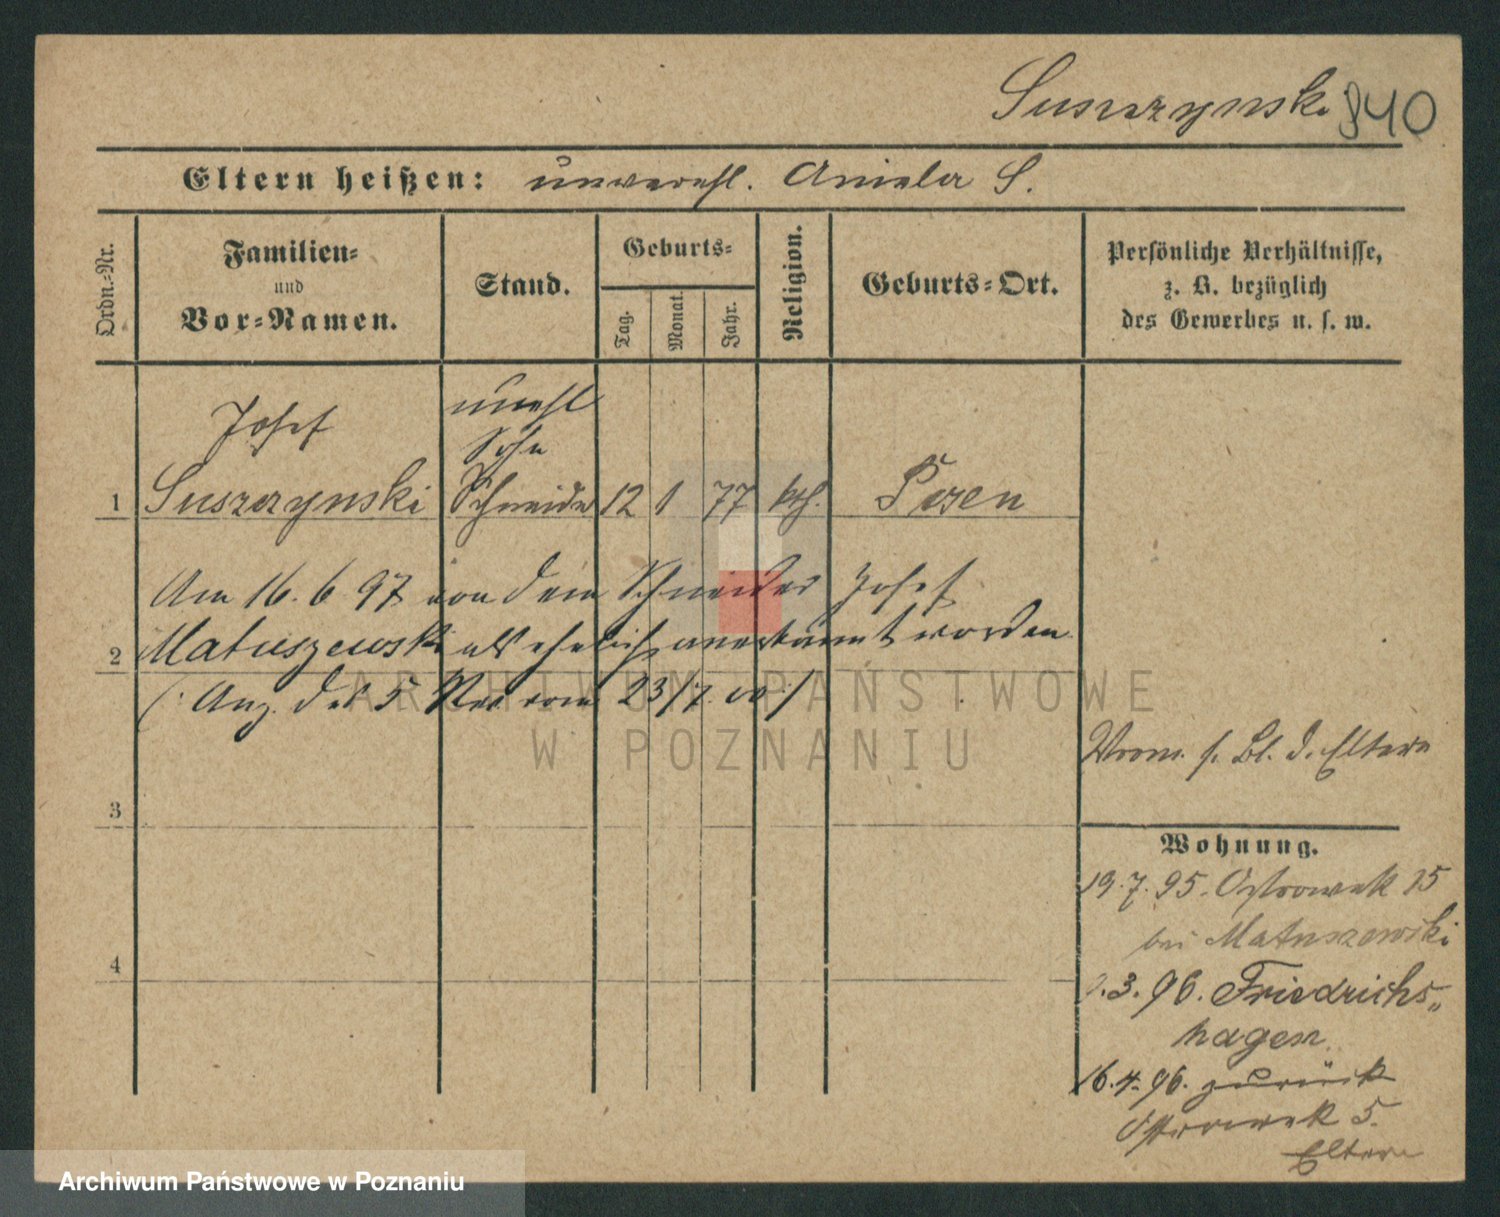 Suszczynski 840
Eltern heißen: unverehl. Aniela S.
Ordn.-Nr.
Familien-
und
Vor-Namen.
Stand.
Geburts-
Tag.
Monat.
Jahr.
Religion.
Geburts-Ort.
Persönliche Verhältnisse,
z. B. bezüglich
des Gewerbes u. s. w.
Josef
unehl
Sohn
1 Suszczynski Schneider 12 1 77 kth. Posen
Am 16. 6 97 von dem Schneider Josef
2 Matuszewski als ehelich anerkannt worden.
(Anz. des 5 Rev vom 23/7. 00)
ARCHIWUM PAŃSTWOWE
W POZNANIU
Vrom. s. Bl. d. Eltern
3
Wohnung.
19.7.95. Ostrowek 15
bei Matuszewski
4
.3.96. Friedrichs-
hagen
16.4.96. zurück
Ostrowek 5.
Eltern
Archiwum Państwowe w Poznaniu